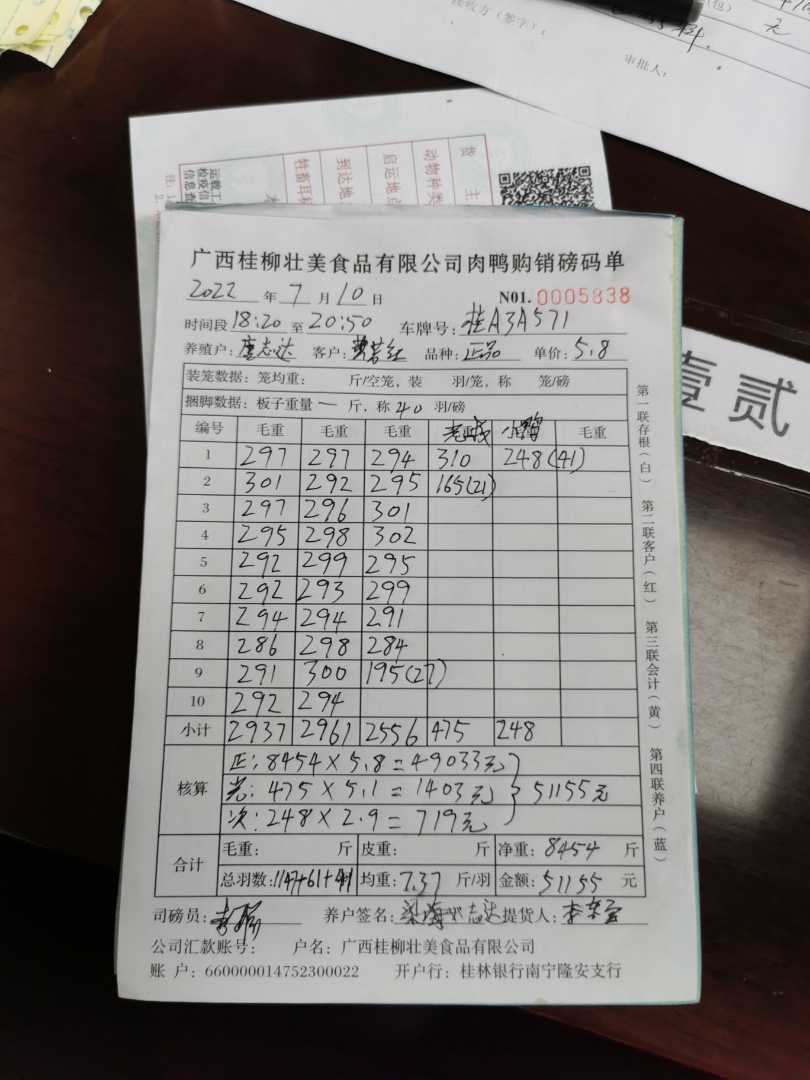 接收方（签字）：
（包）
元
审批人：
货主
动物种类
启运地点
到达地
牲畜耳标
运载工
检疫信
信息查
壹贰
广西桂柳壮美食品有限公司肉鸭购销磅码单
2022年7月10日 N01.0005838
时间段18:20至20:50 车牌号：桂A3A571
养殖户：廖志达 客户： 品种：正品 单价：5.8
装笼数据：笼均重： 斤/空笼，装 羽/笼，称 笼/磅
捆脚数据：板子重量一斤，称40羽/磅
编号 毛重 毛重 毛重 小鸭 毛重
1 297 297 294 310 248(41)
2 301 292 295 165(21)
3 297 296 301
4 295 298 302
5 292 299 295
6 292 293 299
7 294 294 291
8 286 298 284
9 291 300 195(27)
10 292 294
小计 2937 2961 2556 475 248
核算
正：8454×5.8=49033元
光：475×5.1=1403元 } 51155元
次：248×2.9=719元
合计
毛重： 斤 皮重： 斤 净重：8454 斤
总羽数：1147+61+41 均重：7.37 斤/羽 金额：51155 元
司磅员： 养户签名： 志达 提货人：
公司汇款账号： 户名：广西桂柳壮美食品有限公司
账 户：660000014752300022 开户行：桂林银行南宁隆安支行
第一联存根（白） 第二联客户（红） 第三联会计（黄） 第四联养户（蓝）